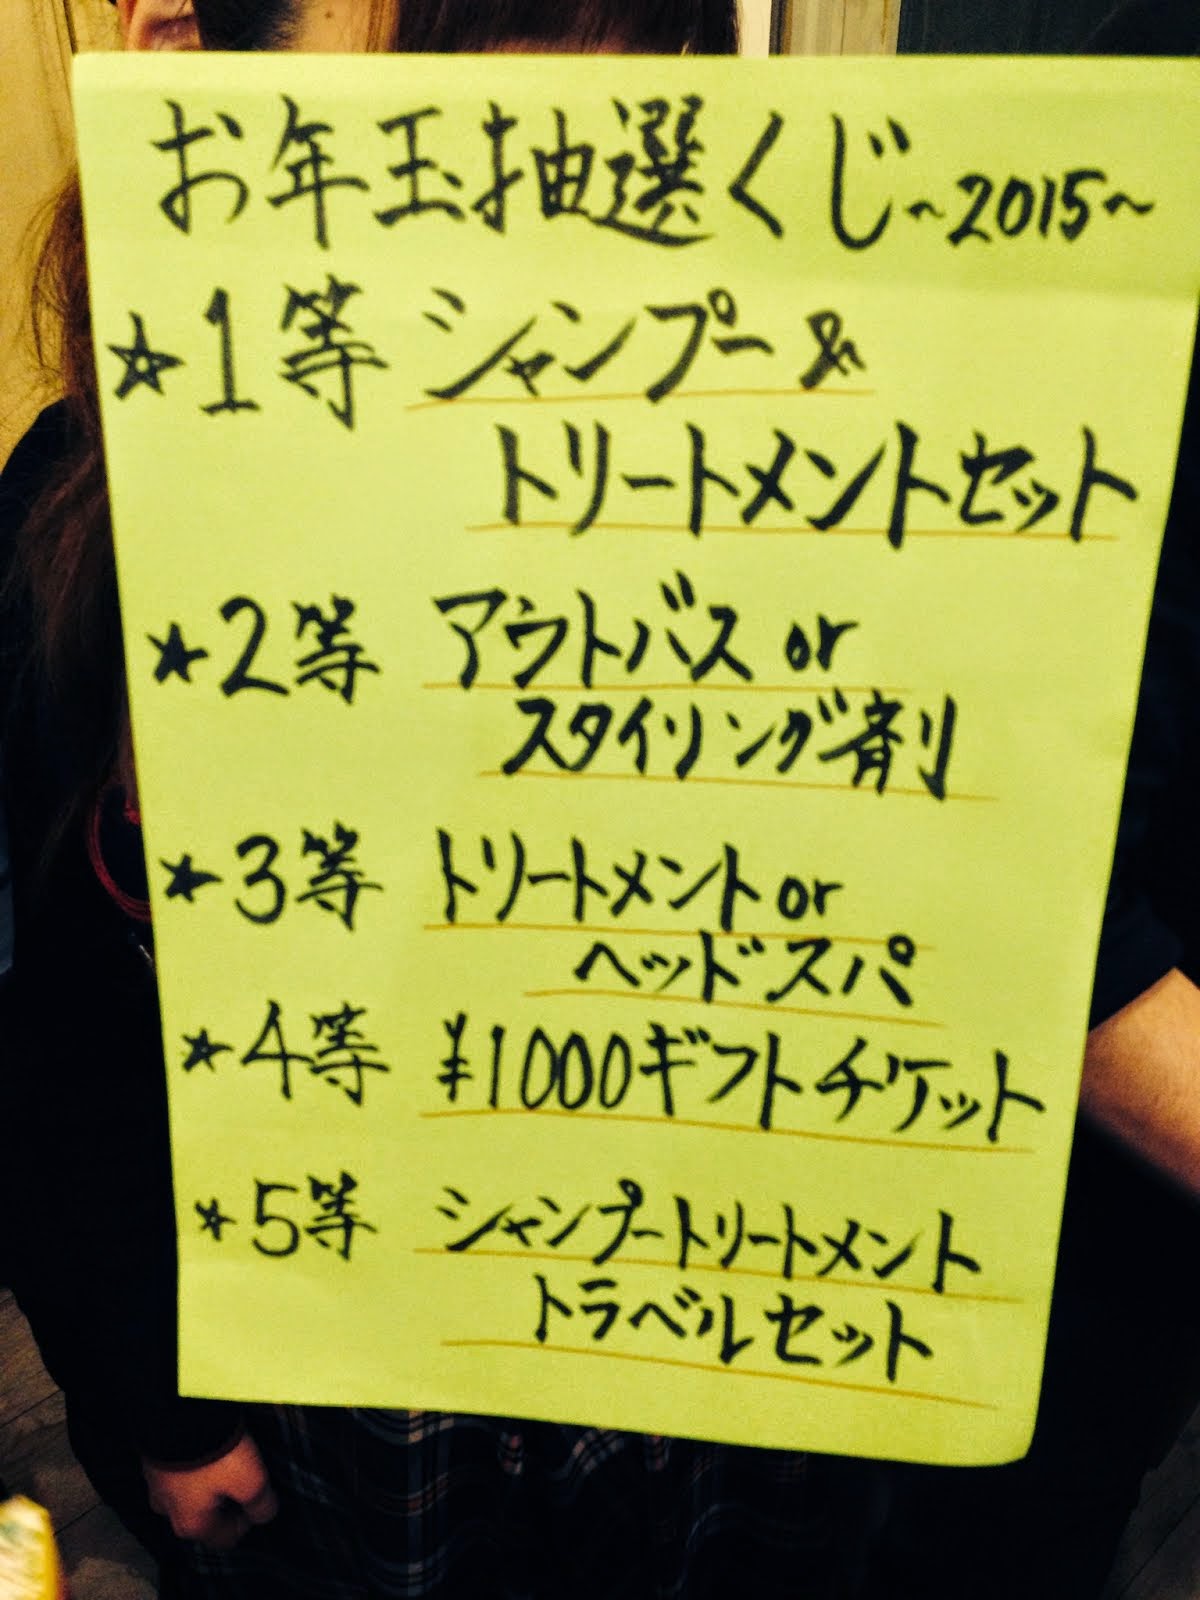 お年玉抽選くじ~2015~
☆1等 シャンプー&
トリートメントセット
★2等 アウトバス or
スタイリング剤
★3等 トリートメント or
ヘッドスパ
★4等 ¥1000ギフトチケット
★5等 シャンプートリートメント
トラベルセット